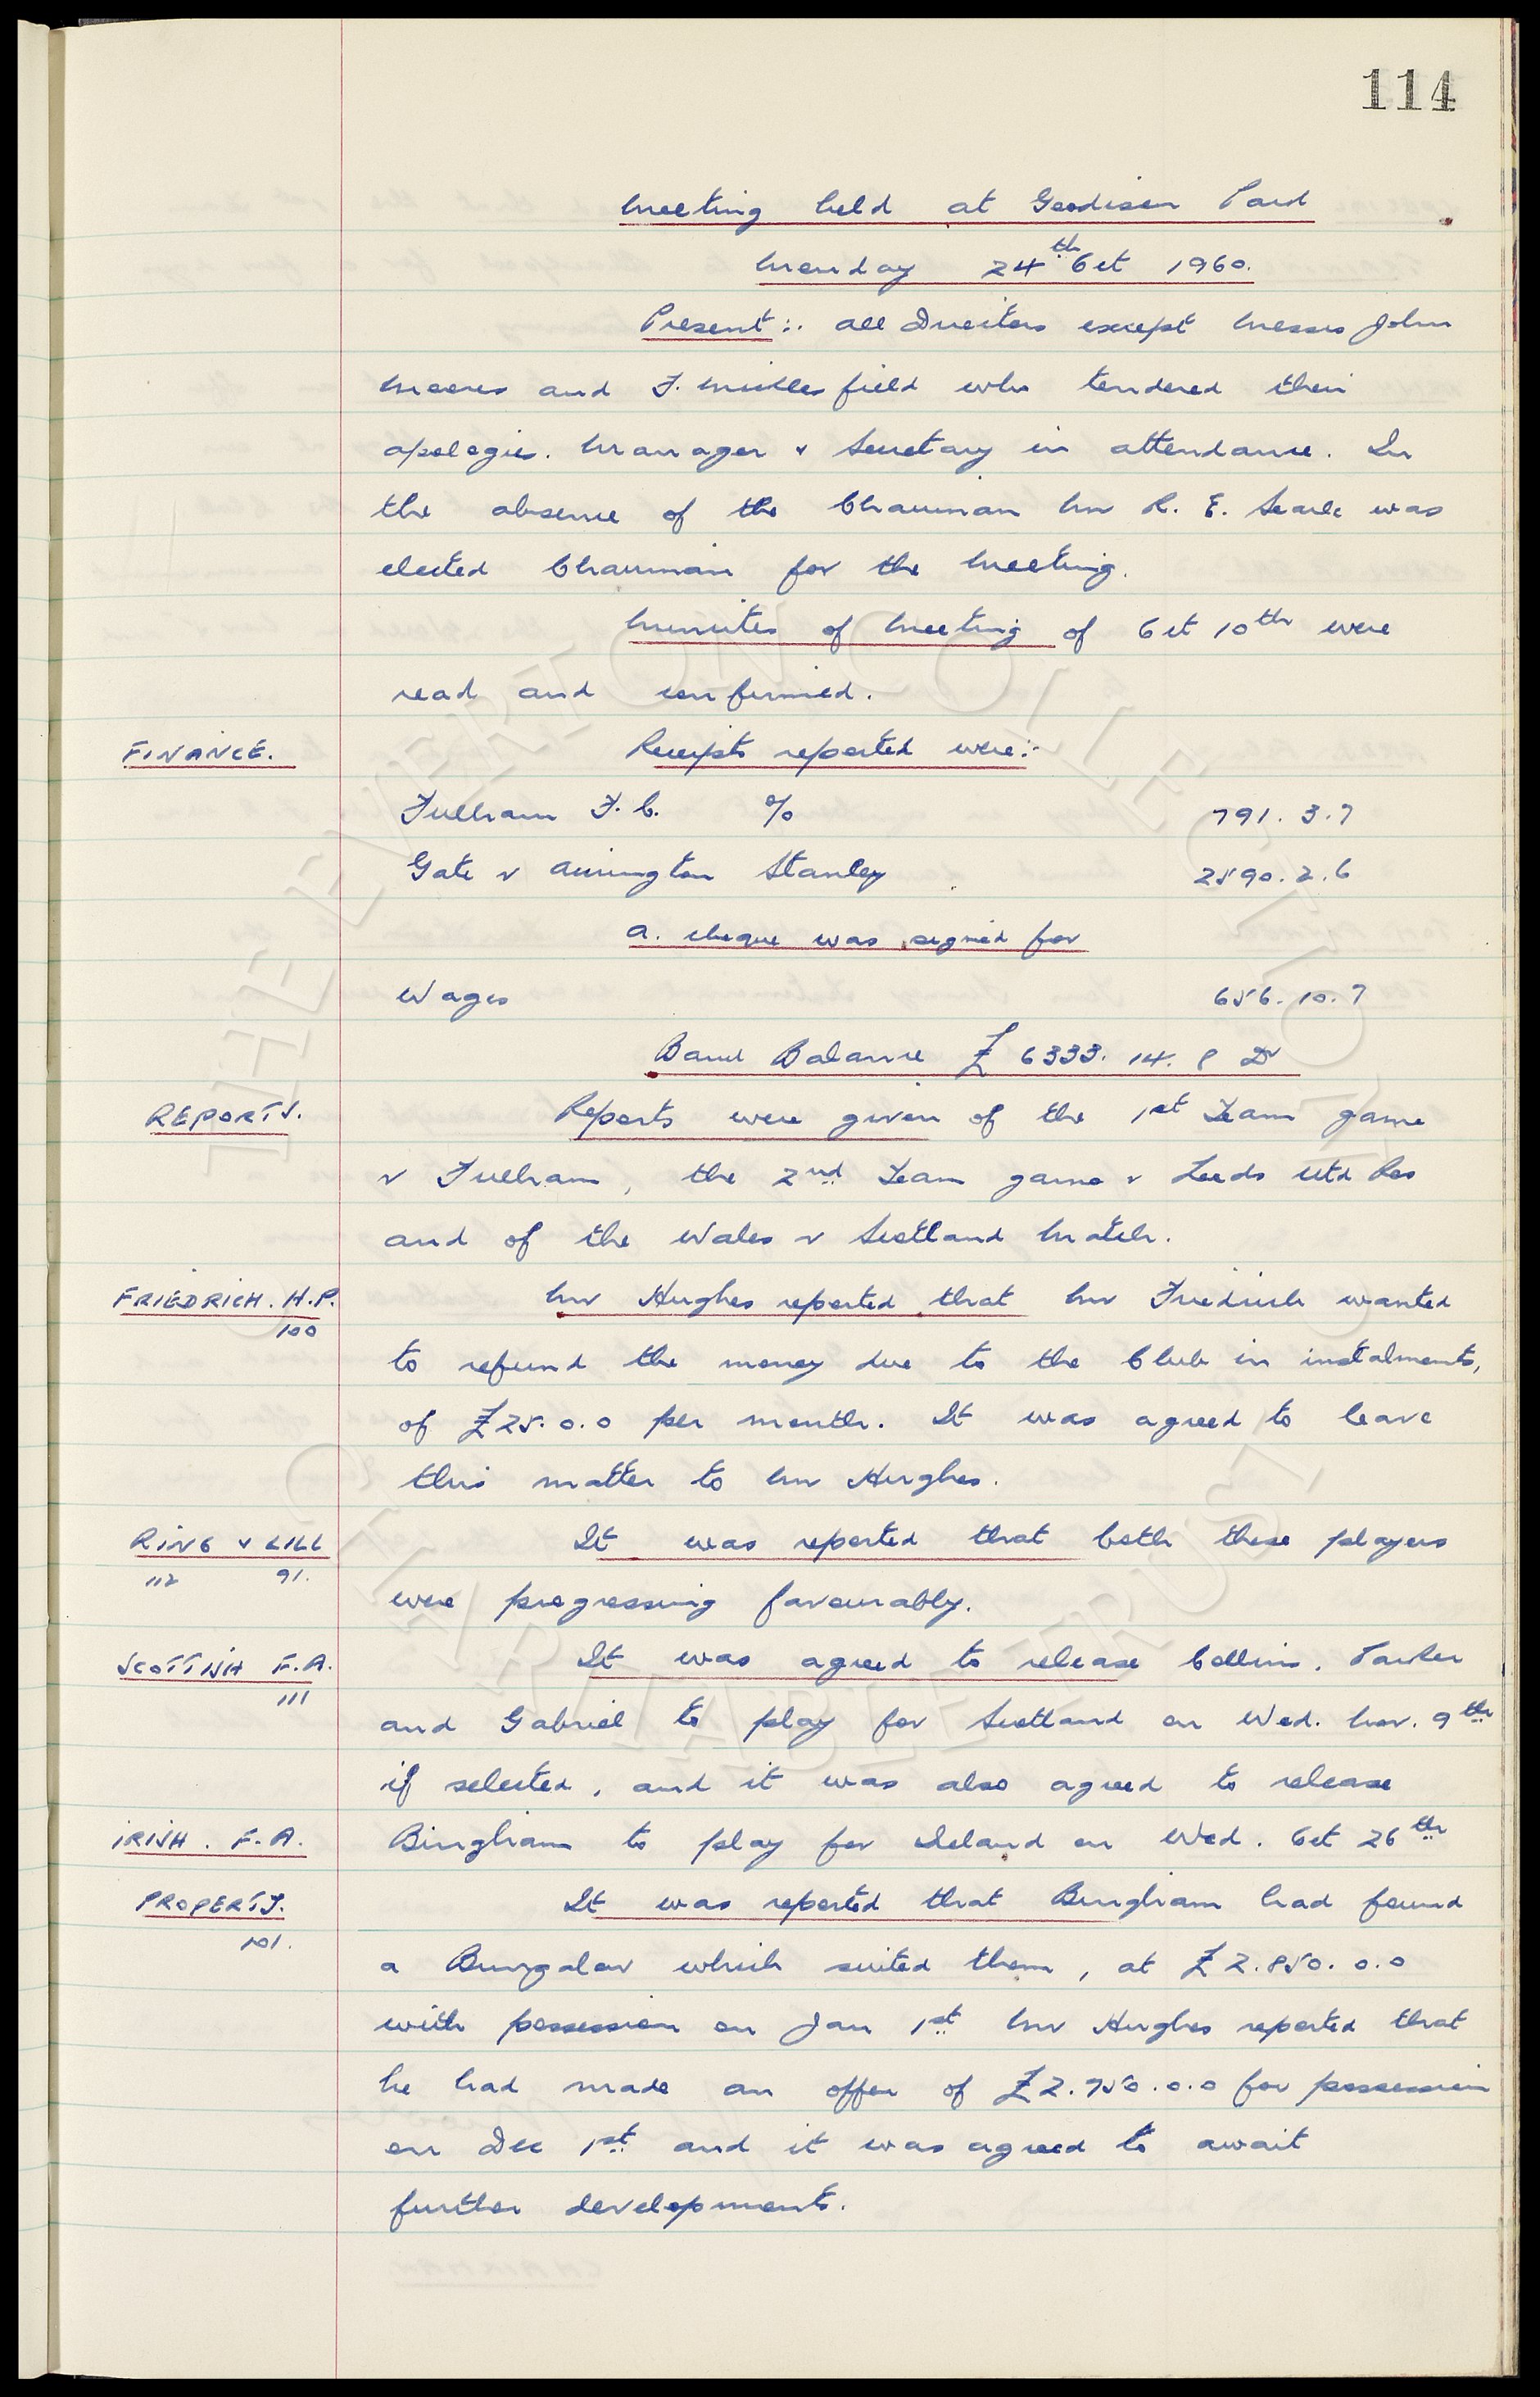 114
Meeting held at Goodison Park
Monday 24th Oct 1960.
Present:. All Directors except Messrs John
Moores and F. Micklesfield who tendered their
apologies. Manager & Secretary in attendance. In
the absence of the Chairman Mr R. E. Searle was
elected Chairman for the Meeting.
Minutes of Meeting of Oct 10th were
read and confirmed.
FINANCE.
Receipts reported were:-
Fulham F.C. % 791. 3. 7
Gate v Accrington Stanley 2590. 2. 6
A. cheque was signed for
Wages 656. 10. 7
Bank Balance £ 6333. 14. 8 Dr
REPORTS.
Reports were given of the 1st Team game
v Fulham, the 2nd Team game v Leeds Utd Res
and of the Wales v Scotland Match.
FRIEDRICH. H.P.
100
Mr Hughes reported that Mr Friedrich wanted
to refund the money due to the Club in instalments,
of £25. 0. 0 per month. It was agreed to leave
this matter to Mr Hughes.
RING & LILL
112 91.
It was reported that both these players
were progressing favourably.
SCOTTISH F.A.
111
It was agreed to release Collins, Parker
and Gabriel to play for Scotland on Wed. Nov. 9th
if selected, and it was also agreed to release
IRISH. F.A.
Bingham to play for Ireland on Wed. Oct 26th
PROPERTY.
101.
It was reported that Bingham had found
a Bungalow which suited them, at £2.850. 0. 0
with possession on Jan 1st Mr Hughes reported that
he had made an offer of £2.750. 0. 0 for possession
on Dec 1st and it was agreed to await
further developments.
THE EVERTON COLLECTION